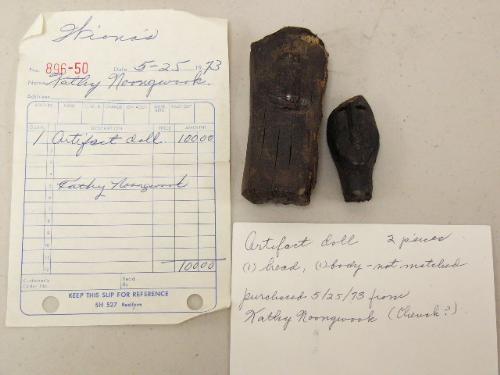 Wiona's
No. 896-50 Date 5-25 1973
Name Kathy Noongwook
Address
QUAN. DESCRIPTION PRICE AMOUNT
1 Artifact doll 100 00
Kathy Noongwook
100 00
Customer's Order No. Rec'd By
KEEP THIS SLIP FOR REFERENCE
5H 527 Rediform
Artifact doll 2 pieces
(1) head, (1) body - not matched
purchased 5/25/73 from
Kathy Noongwook (Chevak?)